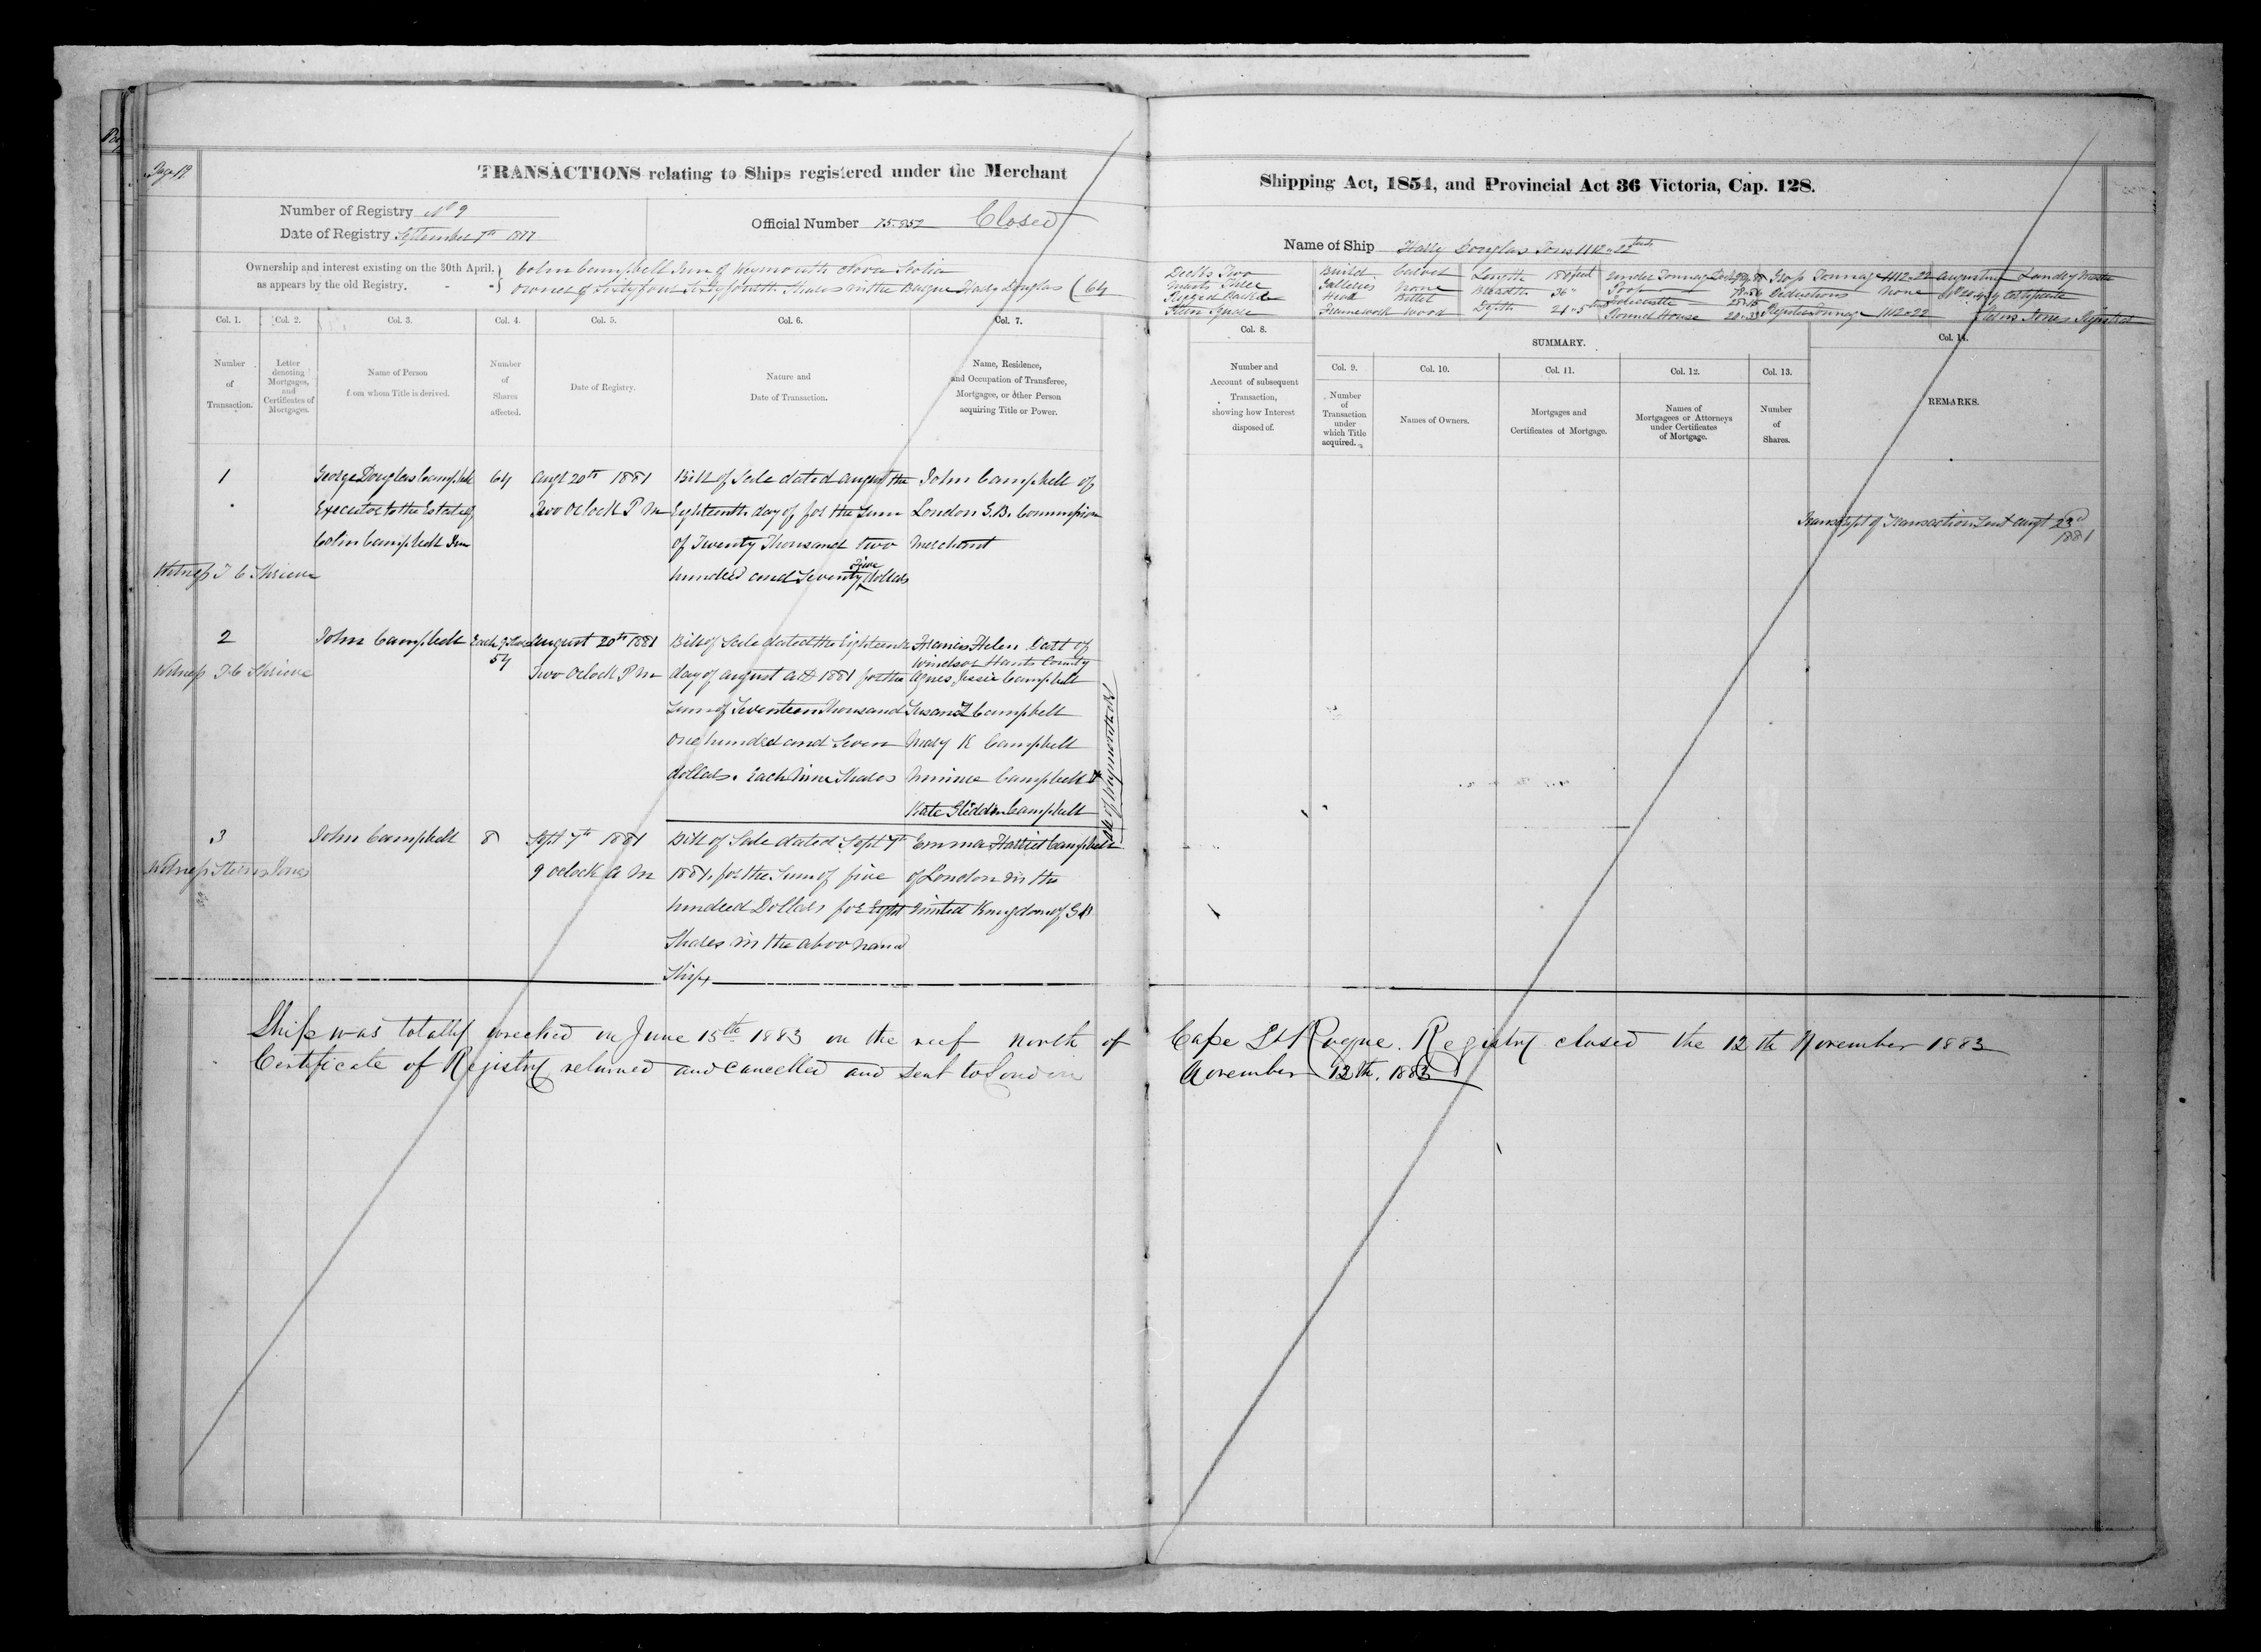 Page 19
TRANSACTIONS relating to Ships registered under the Merchant
Shipping Act, 1854, and Provincial Act 36 Victoria, Cap. 128.
Number of Registry No 9
Date of Registry September 7th 1877
Official Number 75.952 Closed
Name of Ship Harry Douglas Tons 1112.22
Ownership and interest existing on the 30th April,
as appears by the old Registry.
Colin Campbell Junr of Weymouth Nova Scotia
owner of Sixty four Sixty fourth Shares in the Barque Harry Douglas (64
Decks Two
Masts Three
Rigged Bark
Stern Square
Build Carvel
Galleries None
Head Billet
Framework Wood
Length 188 feet
Breadth 36
Depth 21.5
Under Tonnage Deck
Poop
Forecastle
Round House
Gross Tonnage 1112.22
Deductions None
Register Tonnage 1112.22
Augustus Landry Master
Certificate
Registrar
Col. 1.
Number
of
Transaction.
Col. 2.
Letter
denoting
Mortgages,
and
Certificates of
Mortgages.
Col. 3.
Name of Person
from whom Title is derived.
Col. 4.
Number
of
Shares
affected.
Col. 5.
Date of Registry.
Col. 6.
Nature and
Date of Transaction.
Col. 7.
Name, Residence,
and Occupation of Transferee,
Mortgagee, or other Person
acquiring Title or Power.
Col. 8.
Number and
Account of subsequent
Transaction,
showing how Interest
disposed of.
SUMMARY.
Col. 9.
Number
of
Transaction
under
which Title
acquired.
Col. 10.
Names of Owners.
Col. 11.
Mortgages and
Certificates of Mortgage.
Col. 12.
Names of
Mortgagees or Attorneys
under Certificates
of Mortgage.
Col. 13.
Number
of
Shares.
Col. 14.
REMARKS.
1
George Douglas Campbell
Executor to the Estate of
Colin Campbell Jun
Witness T C Shrieve
64
Augt 20th 1881
Two Oclock P M
Bill of Sale dated August the
Eighteenth day of for the Sum
of Twenty Thousand two
hundred and Seventy five dollars
John Campbell of
London G.B. Commission
Merchant
Transcript of Transaction Sent Augt 23d
1881
2
Witness T C Shrieve
John Campbell
54
August 20th 1881
Two Oclock P M
Bill of Sale dated the Eighteenth
day of August AD 1881 for the
Sum of Seventeen Thousand
One hundred and Seven
dollars. Each Nine Shares
Frances Helen Dart of
Windsor Hants County
Agnes Jessie Campbell
Susan Campbell
Mary K Campbell
Minnie Campbell &
Kate Glidden Campbell
all of Weymouth NS
3
Witness
John Campbell
8
Sept 7th 1881
9 Oclock A M
Bill of Sale dated Sept 7th
1881, for the Sum of five
hundred Dollars for Eight
Shares in the above named
Ship
Emma Harriet Campbell
of London in the
United Kingdom of GB
Ship was totally wrecked on June 15th 1883 on the reef north of Cape St Roque. Registry closed the 12th November 1883
Certificate of Registry returned and cancelled and sent to London November 12th, 1883